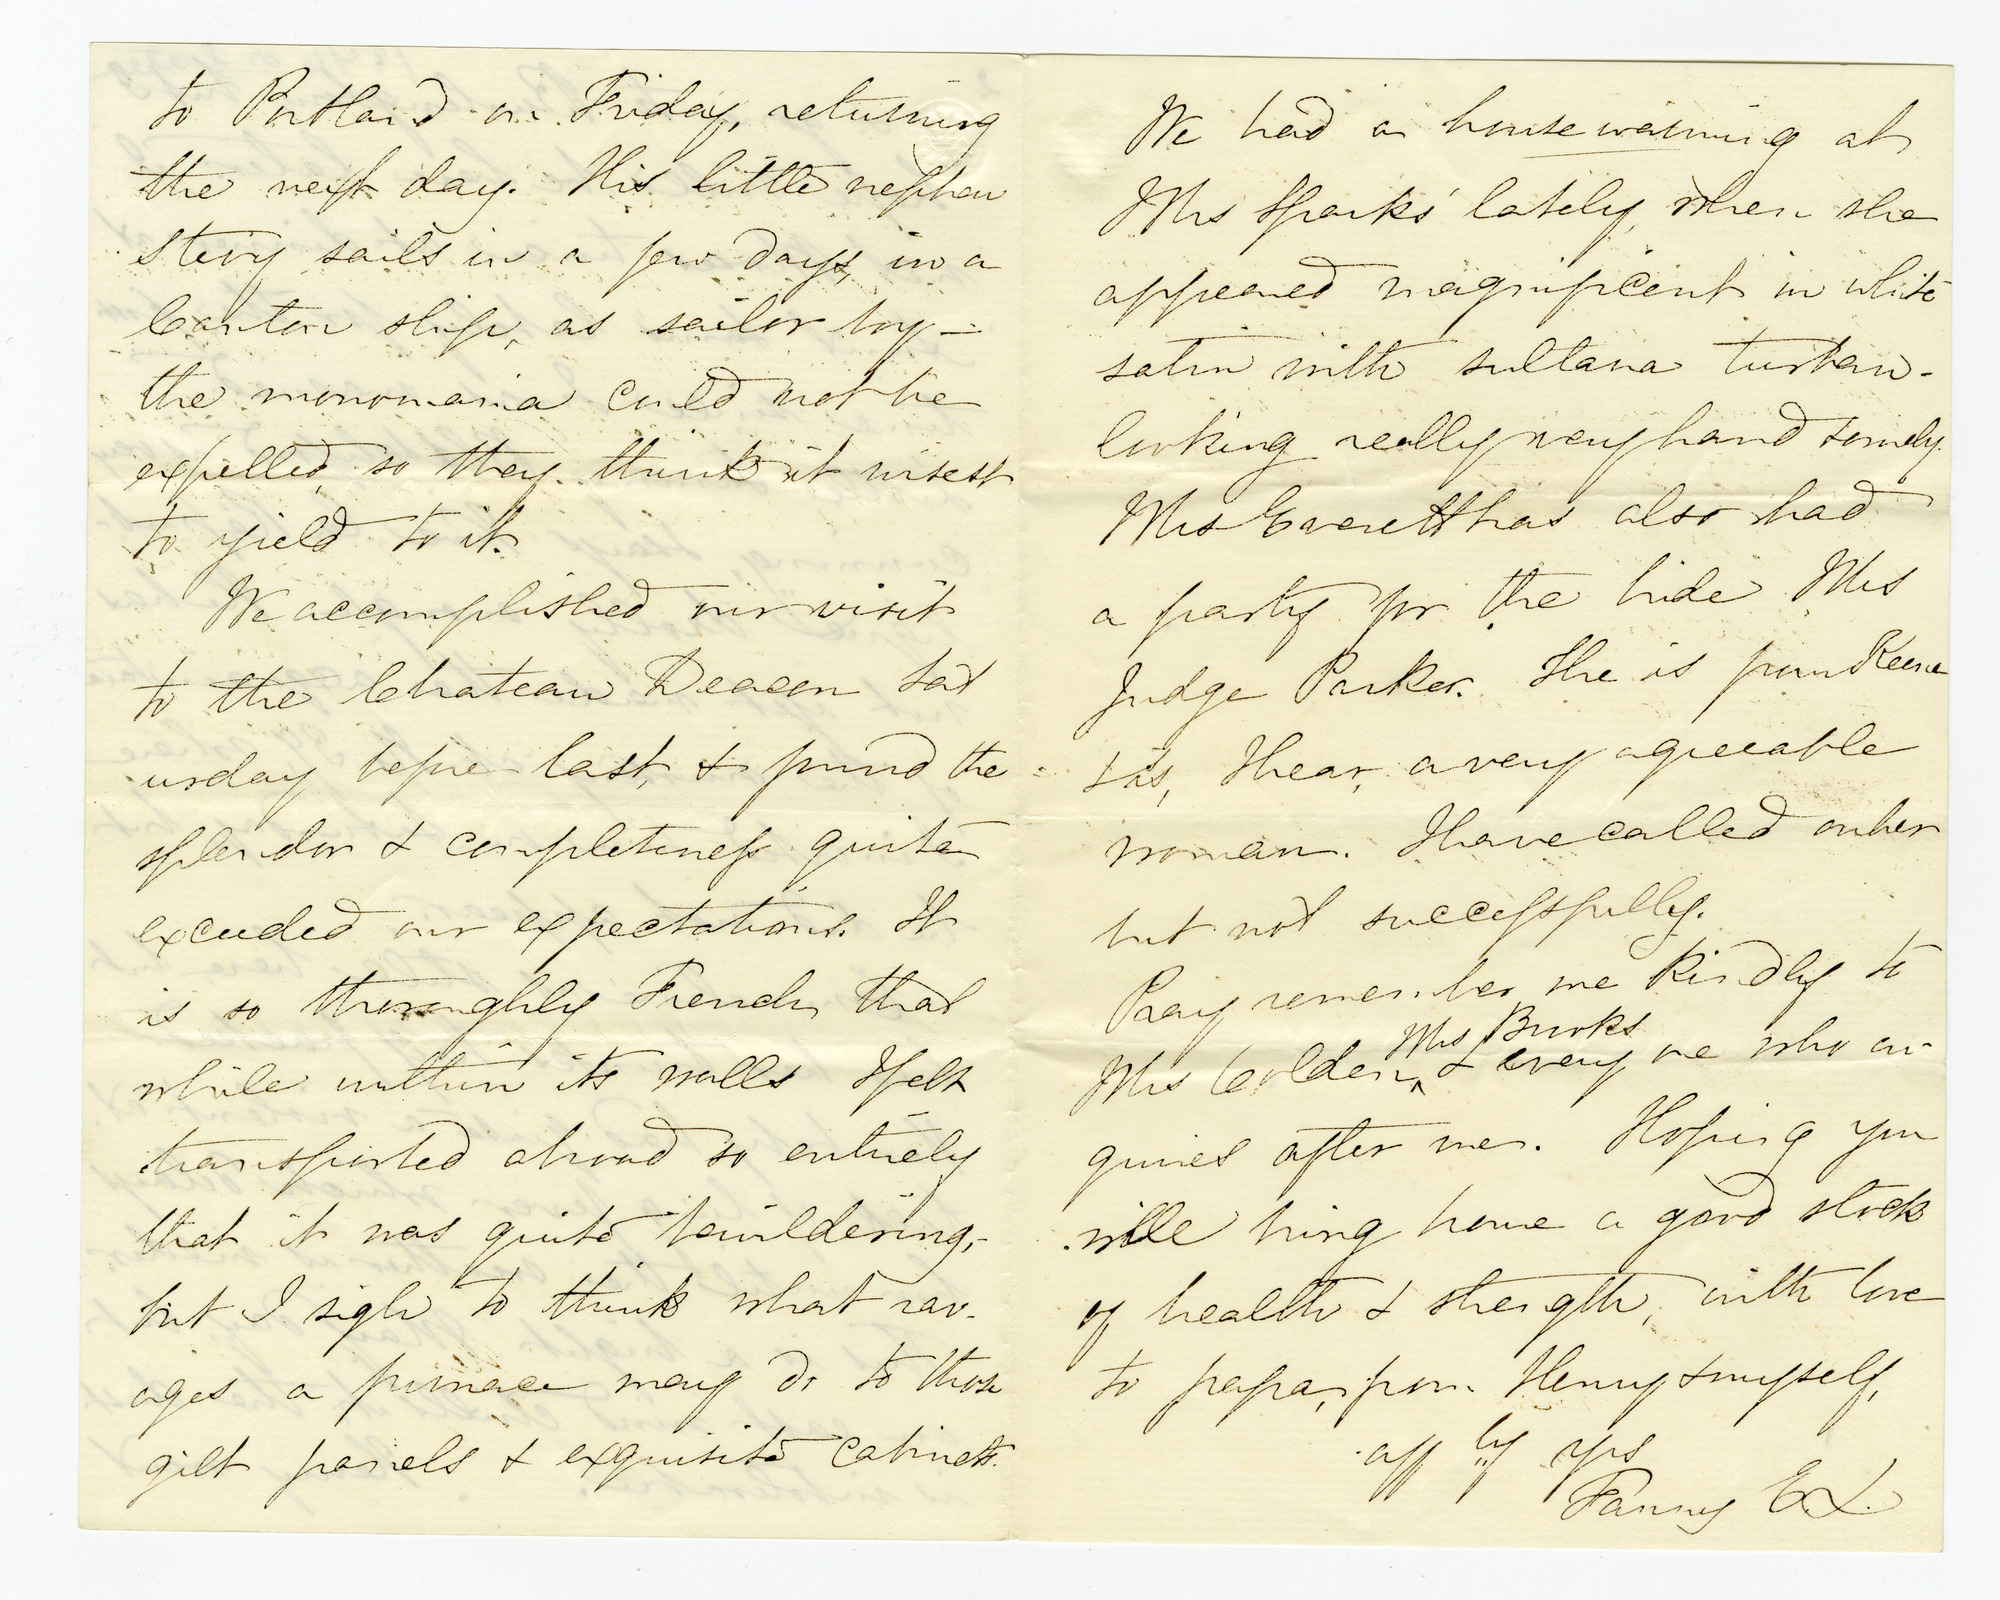 to Portland on Friday, returning
the next day. His little nephew
Stevy sails in a few days, in a
Canton ship, as sailor boy –
the monomania could not be
expelled, so they think it wisest
to yield to it.
We accomplished our visit
to the Chateau Deacon Sat
urday before last, & found the
splendor & completeness quite
exceeded our expectations. It
is so thoroughly French that
while within its walls I felt
transported abroad so entirely
that it was quite bewildering,-
but I sigh to think what rav-
ages a furnace may do to those
gilt panels & exquisite cabinets.
We had a housewarming at
Mrs Sparks' lately, when she
appeared magnificent in white
satin with sultana turban-
looking really very handsomely.
Mrs Everett has also had
a party for the bride Mrs
Judge Parker. She is from Keene
& is, I hear, a very agreeable
woman. I have called on her
but not successfully.
Pray remember me kindly to
Mrs Brooks
Mrs Colden, & every one who en-
quires after me. Hoping you
will bring home a good stock
of health & strength, with love
to papa, from Henry & myself,
aff ly yrs
Fanny E. L.